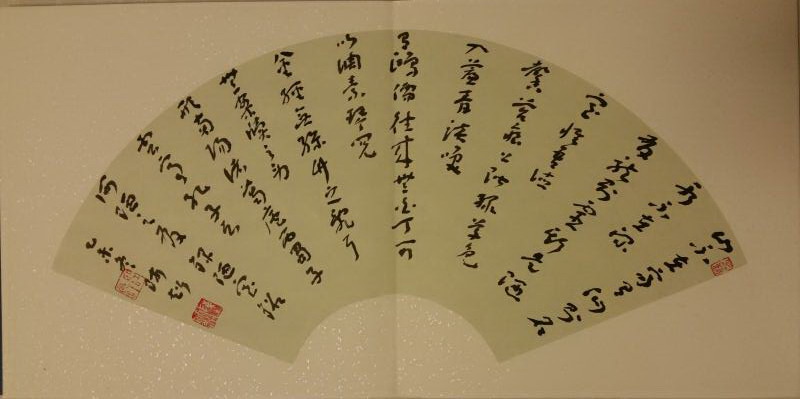 山不在高有仙則名
水不在深
有龍則靈斯是陋
室惟吾德馨
苔痕上階綠草色
入簾青談笑
有鴻儒往來無白丁可
以調素琴閱
金經無絲竹之亂耳
無案牘之勞
形南陽諸葛廬西蜀子
雲亭孔子云
何陋之有 陋室銘
乙未冬